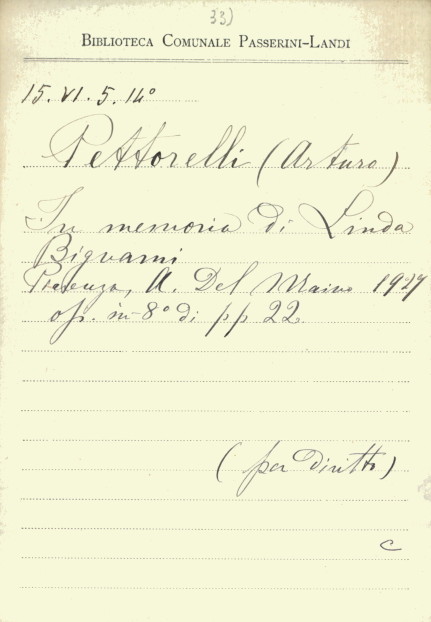 33)
BIBLIOTECA COMUNALE PASSERINI-LANDI
15. VI. 5. 14°
Pettorelli (Arturo)
In memoria di Linda
Bignami
Piacenza, A. Del Maino 1927
op. in-8° di pp 22.
(per diritto)
C